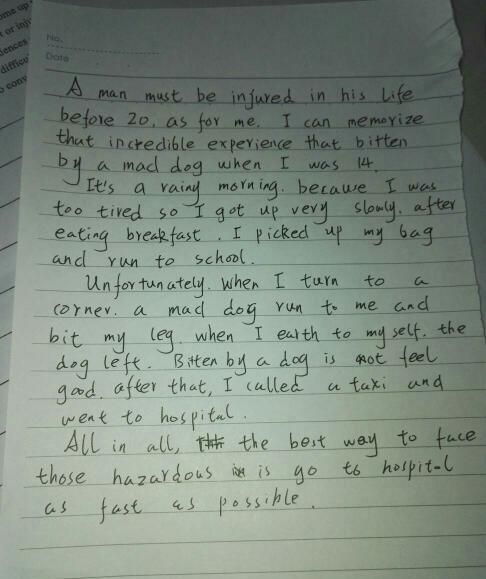 ome up
t or inju
iences
difficu
o conv
No.
Date
A man must be injured in his life
before 20, as for me. I can memorize
that incredible experience that bitten
by a mad dog when I was 14.
It's a rainy morning. because I was
too tired so I got up very slowly. after
eating breakfast. I picked up my bag
and run to school.
Unfortunately. when I turn to a
corner. a mad dog run to me and
bit my leg. when I earth to my self. the
dog left. Bitten by a dog is not feel
good. after that, I called a taxi and
went to hospital.
All in all, the best way to face
those hazardous is go to hospital
as fast as possible.